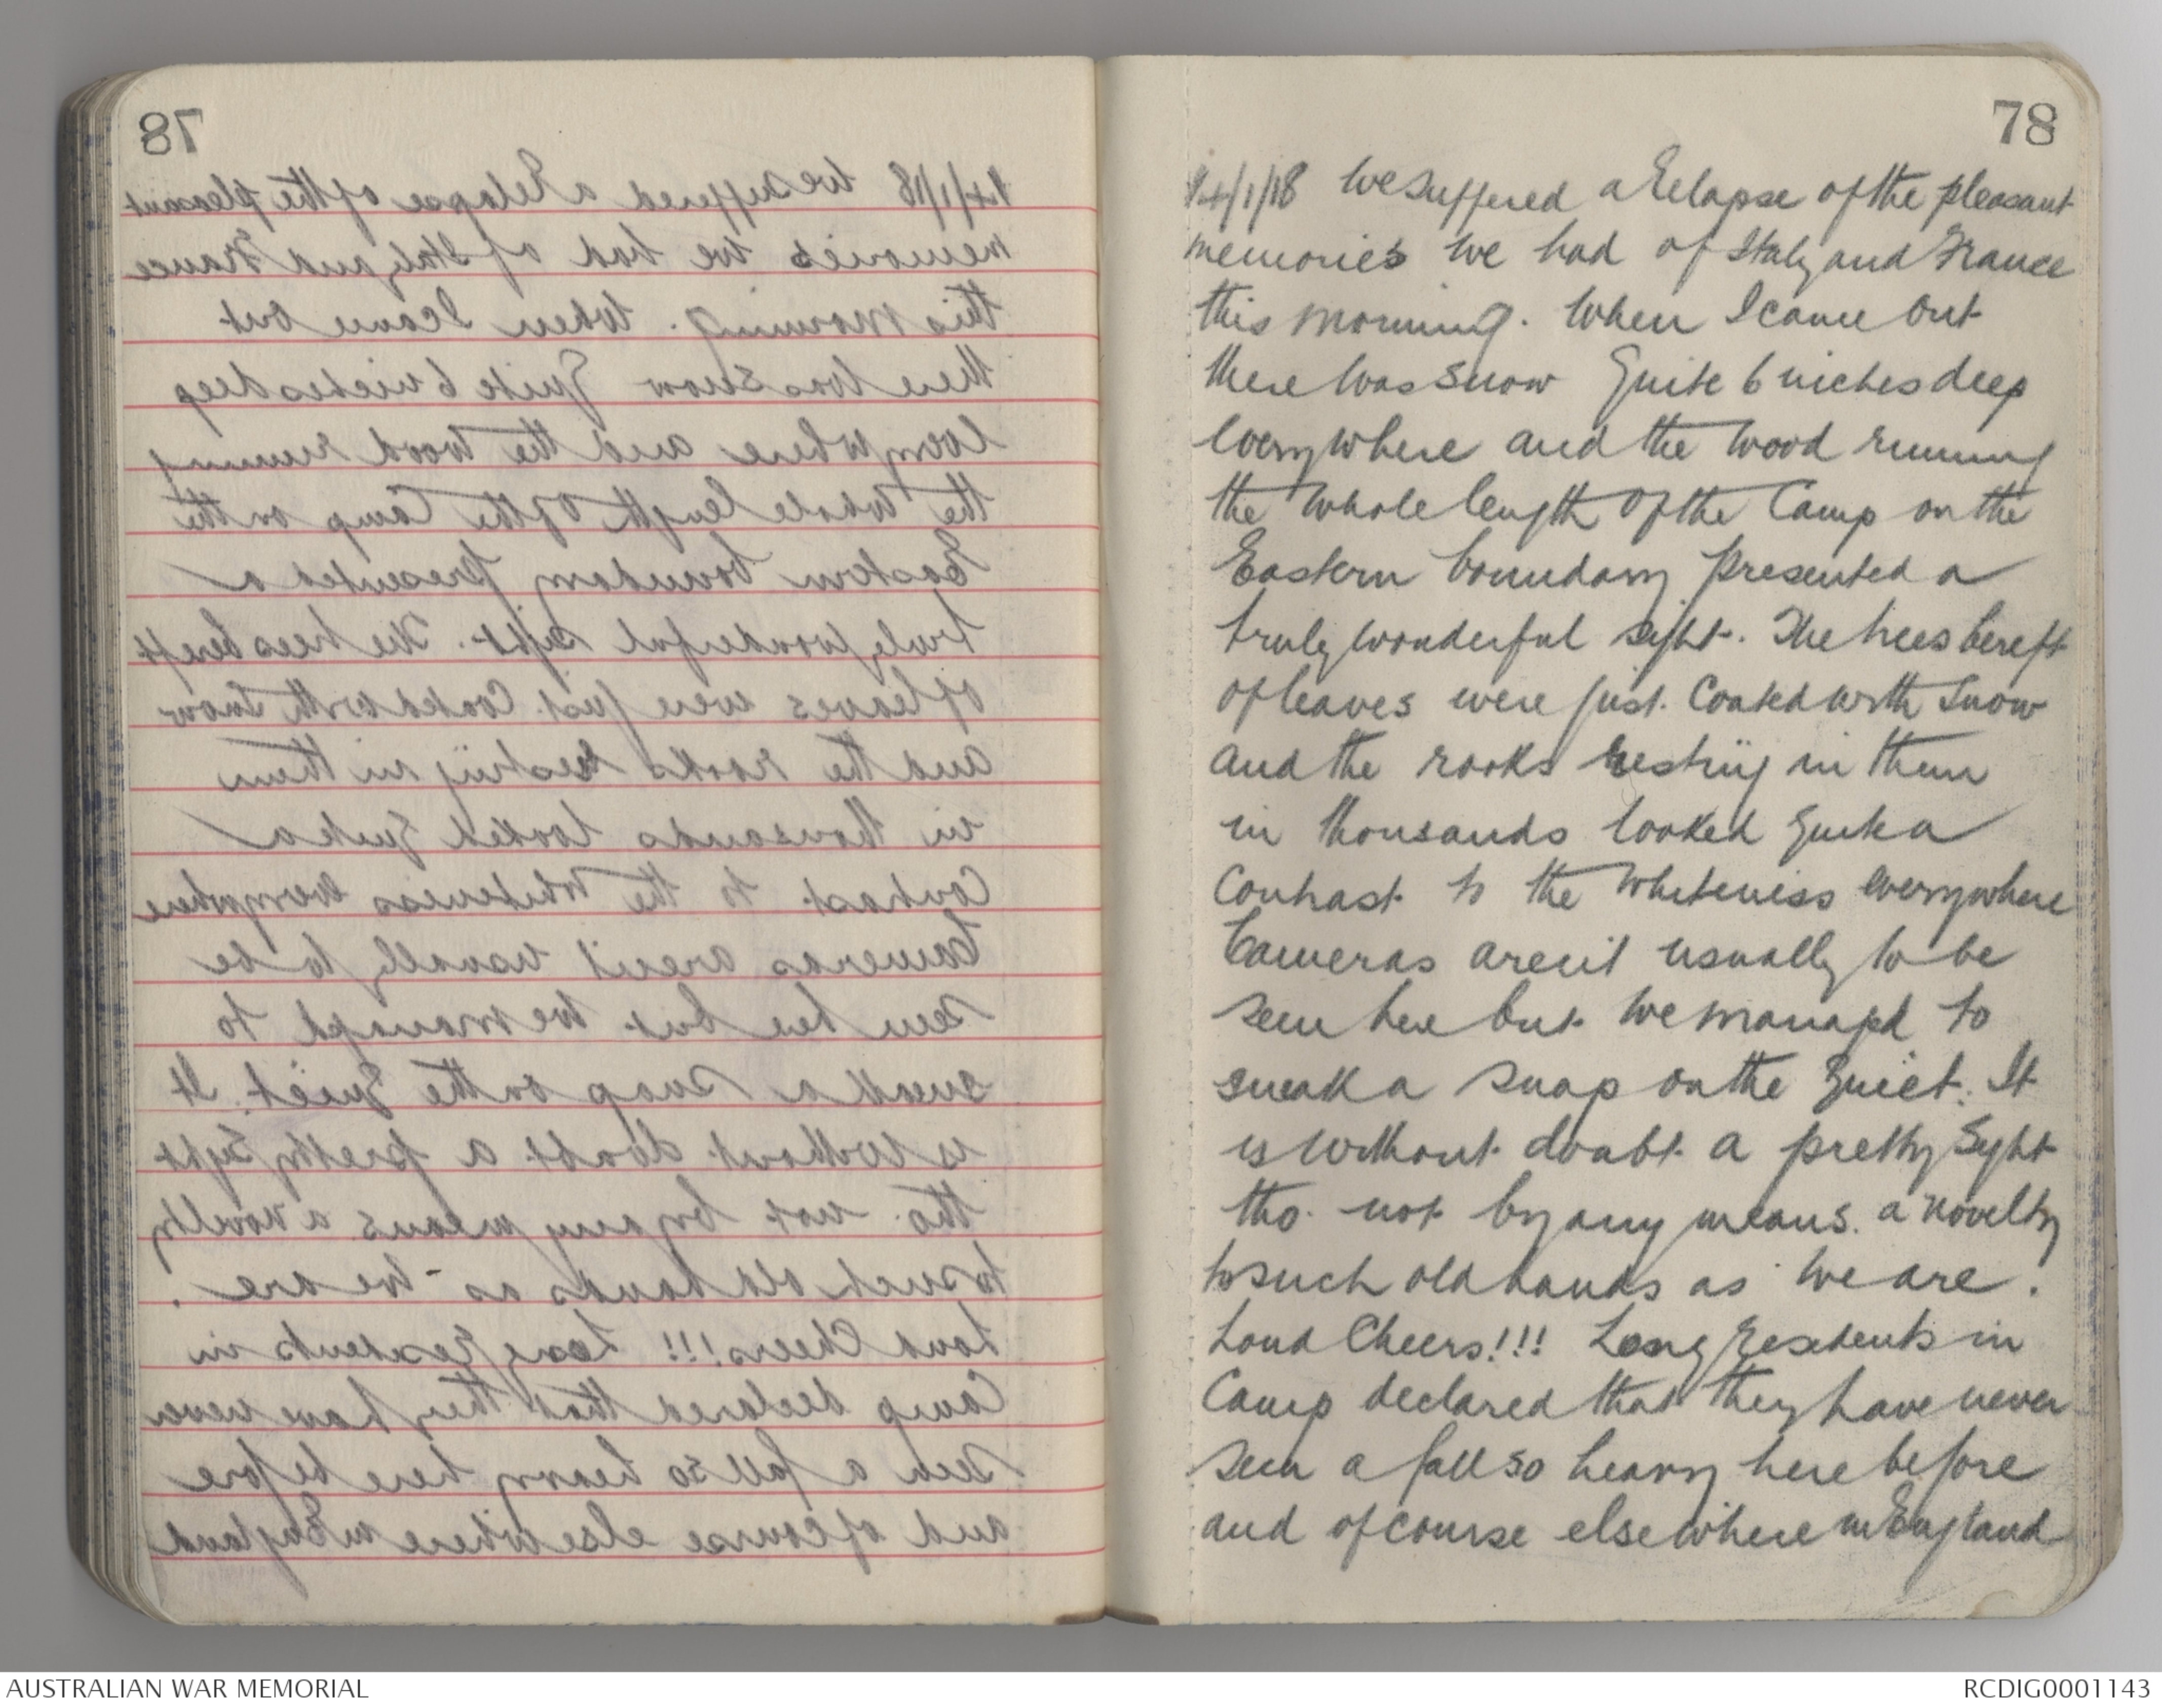 78
14/1/18 We suffered a Relapse of the pleasant
memories we had of Italy and France
this morning. When I came out
there was snow Quite 6 inches deep
Everywhere and the wood running
the whole length of the Camp on the
Eastern boundary presented a
truly wonderful sight. The trees bereft
of leaves were just Coated with Snow
and the rooks resting in them
in thousands looked Quite a
Contrast to the Whiteness everywhere
Cameras aren't usually to be
seen here but we managed to
sneak a snap on the Quiet. It
is without doubt a pretty Sight
tho. not by any means. a novelty
to such old hands as we are.
Loud Cheers!!! Long Residents in
Camp declared that they have never
seen a fall so heavy here before
and of course elsewhere in England
AUSTRALIAN WAR MEMORIAL
RCDIG0001143